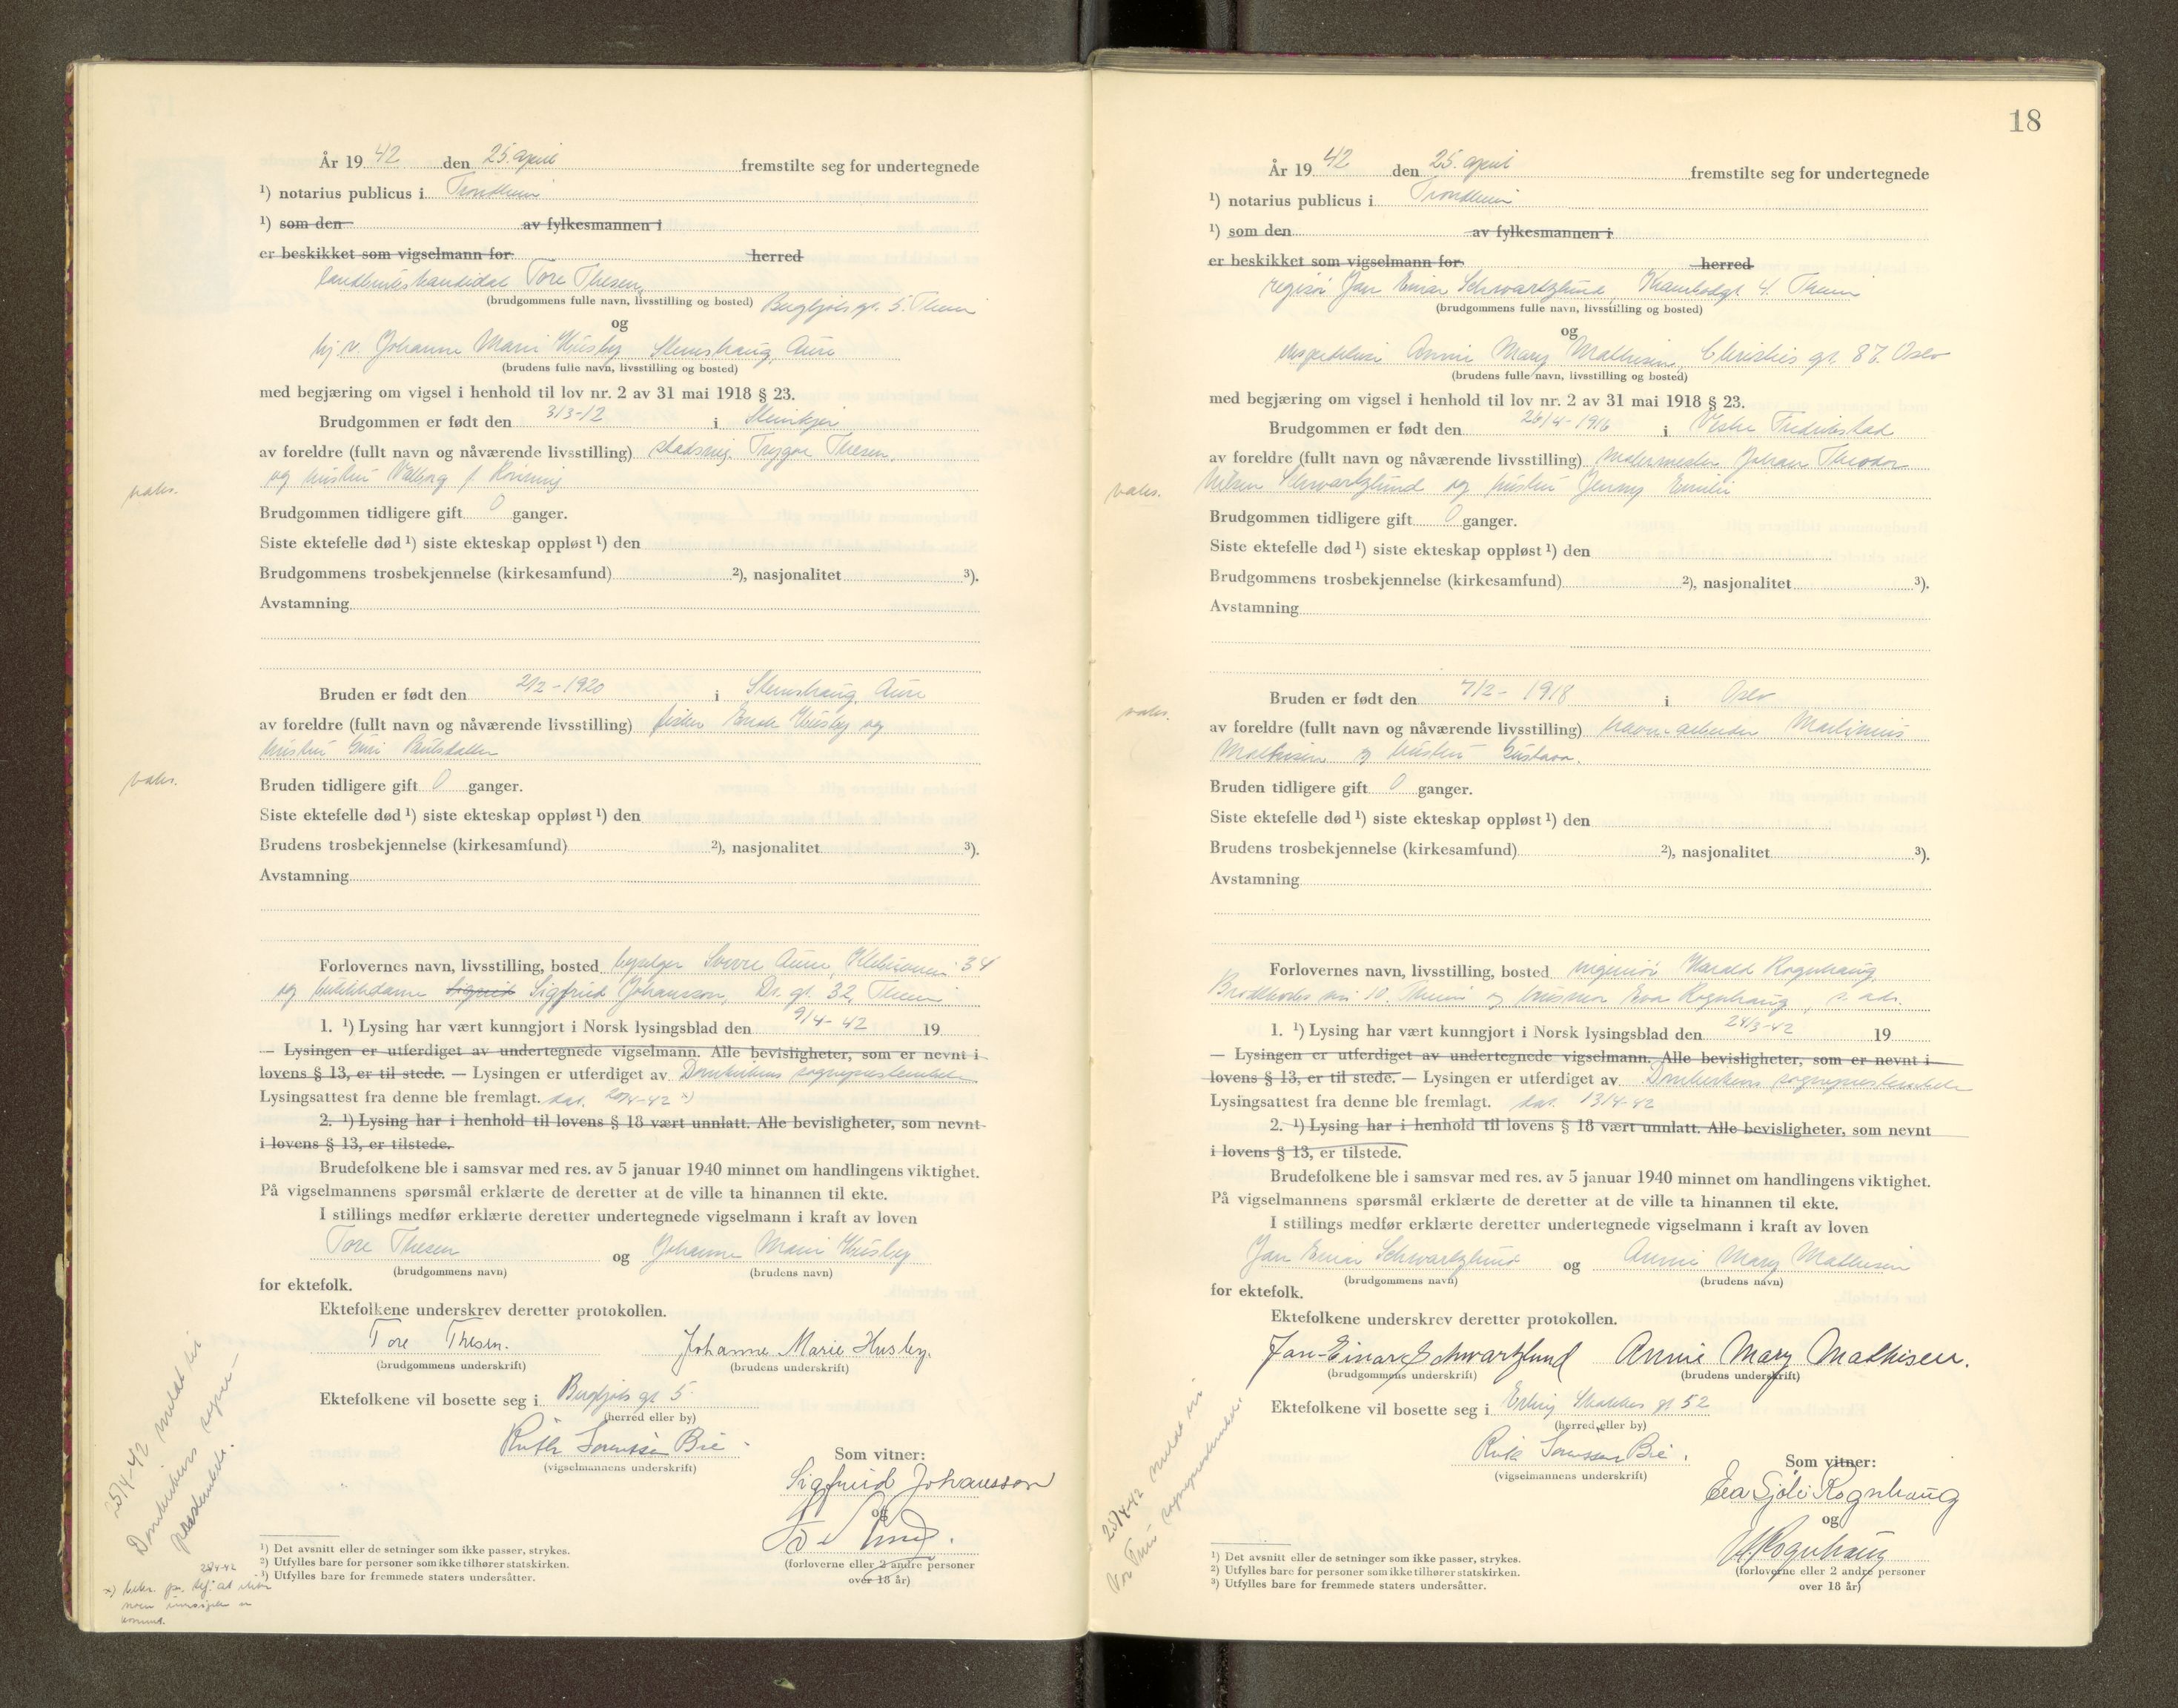 År 19 42 den 25. april fremstilte seg for undertegnede
¹) notarius publicus i Trondheim
¹) som den av fylkesmannen i
er beskikket som vigselmann for herred
Tore Thesen,
(brudgommens fulle navn, livsstilling og bosted) Bergljots gt. 5. Theim
og
hj.v. Johanne Marie Husby Stemshaug, Aure
(brudens fulle navn, livsstilling og bosted)
med begjæring om vigsel i henhold til lov nr. 2 av 31 mai 1918 § 23.
Brudgommen er født den 3/3-12 i Steinkjer
av foreldre (fullt navn og nåværende livsstilling) stadsing. Trygve Thesen,
og hustru Valborg f. Rønning
vaks.
Brudgommen tidligere gift 0 ganger.
Siste ektefelle død ¹) siste ekteskap oppløst ¹) den
Brudgommens trosbekjennelse (kirkesamfund) ²), nasjonalitet ³).
Avstamning
Bruden er født den 2/2-1920 i Stemshaug, Aure
av foreldre (fullt navn og nåværende livsstilling) fisker Husby og
hustru Guri Paulsdatter
vaks.
Bruden tidligere gift 0 ganger.
Siste ektefelle død ¹) siste ekteskap oppløst ¹) den
Brudens trosbekjennelse (kirkesamfund) ²), nasjonalitet ³).
Avstamning
Forlovernes navn, livsstilling, bosted Sverre Aune, 34
og butikkdame Sigfrid Sigfried Johansson, Dr. gt. 32, Theim
1. ¹) Lysing har vært kunngjort i Norsk lysingsblad den 9/4-42 19
— Lysingen er utferdiget av undertegnede vigselmann. Alle bevisligheter, som er nevnt i
lovens § 13, er til stede. — Lysingen er utferdiget av Domkirkens sogneprestembete
Lysingsattest fra denne ble fremlagt. dat. 20/4-42 x)
2. ¹) Lysing har i henhold til lovens § 18 vært unnlatt. Alle bevisligheter, som nevnt
i lovens § 13, er tilstede.
Brudefolkene ble i samsvar med res. av 5 januar 1940 minnet om handlingens viktighet.
På vigselmannens spørsmål erklærte de deretter at de ville ta hinannen til ekte.
I stillings medfør erklærte deretter undertegnede vigselmann i kraft av loven
Tore Thesen og Johanne Marie Husby
(brudgommens navn) (brudens navn)
for ektefolk.
Ektefolkene underskrev deretter protokollen.
Tore Thesen. Johanne Marie Husby.
(brudgommens underskrift) (brudens underskrift)
Ektefolkene vil bosette seg i Bergljots gt 5.
(herred eller by)
Ruth Sørenssen Bie.
(vigselmannens underskrift)
Som vitner:
Sigfried Johansson
og
(forloverne eller 2 andre personer
over 18 år)
25/4-42 meldt til
Domkirkens sogne-
prestembete.
¹) Det avsnitt eller de setninger som ikke passer, strykes.
²) Utfylles bare for personer som ikke tilhører statskirken.
³) Utfylles bare for fremmede staters undersåtter.
18
År 19 42 den 25. april fremstilte seg for undertegnede
¹) notarius publicus i Trondheim
¹) som den av fylkesmannen i
er beskikket som vigselmann for herred
regisør Jan Einar Schwartzlund, 4. Theim
(brudgommens fulle navn, livsstilling og bosted)
og
Annie Mary Mathisen, Christies gt. 8 Oslo
(brudens fulle navn, livsstilling og bosted)
med begjæring om vigsel i henhold til lov nr. 2 av 31 mai 1918 § 23.
Brudgommen er født den 26/4-1916 i Vestre Fredrikstad
av foreldre (fullt navn og nåværende livsstilling) malermester Johan Theodor
Nilsen Schwartzlund og hustru Jenny Emilie
vaks.
Brudgommen tidligere gift 0 ganger.
Siste ektefelle død ¹) siste ekteskap oppløst ¹) den
Brudgommens trosbekjennelse (kirkesamfund) ²), nasjonalitet ³).
Avstamning
Bruden er født den 7/2-1918 i Oslo
vaks.
av foreldre (fullt navn og nåværende livsstilling) havne-arbeider Martinius
Mathisen og hustru Gustava.
Bruden tidligere gift 0 ganger.
Siste ektefelle død ¹) siste ekteskap oppløst ¹) den
Brudens trosbekjennelse (kirkesamfund) ²), nasjonalitet ³).
Avstamning
Forlovernes navn, livsstilling, bosted ingeniør Harald Rognhaug,
10, Theim og hustru Eva Rognhaug, s. adr.
1. ¹) Lysing har vært kunngjort i Norsk lysingsblad den 24/3-42 19
— Lysingen er utferdiget av undertegnede vigselmann. Alle bevisligheter, som er nevnt i
lovens § 13, er til stede. — Lysingen er utferdiget av Domkirkens sogneprestembete
Lysingsattest fra denne ble fremlagt. dat. 13/4-42
2. ¹) Lysing har i henhold til lovens § 18 vært unnlatt. Alle bevisligheter, som nevnt
i lovens § 13, er tilstede.
Brudefolkene ble i samsvar med res. av 5 januar 1940 minnet om handlingens viktighet.
På vigselmannens spørsmål erklærte de deretter at de ville ta hinannen til ekte.
I stillings medfør erklærte deretter undertegnede vigselmann i kraft av loven
Jan Einar Schwartzlund og Annie Mary Mathisen
(brudgommens navn) (brudens navn)
for ektefolk.
Ektefolkene underskrev deretter protokollen.
Jan-Einar Schwartzlund Annie Mary Mathisen.
(brudgommens underskrift) (brudens underskrift)
Ektefolkene vil bosette seg i Erling Skakkes gt 52
(herred eller by)
Ruth Sørenssen Bie.
(vigselmannens underskrift)
Som vitner:
Eva Sjøli Rognhaug
og
H Rognhaug
(forloverne eller 2 andre personer
over 18 år)
25/4-42 meldt til
sogneprestembete.
¹) Det avsnitt eller de setninger som ikke passer, strykes.
²) Utfylles bare for personer som ikke tilhører statskirken.
³) Utfylles bare for fremmede staters undersåtter.